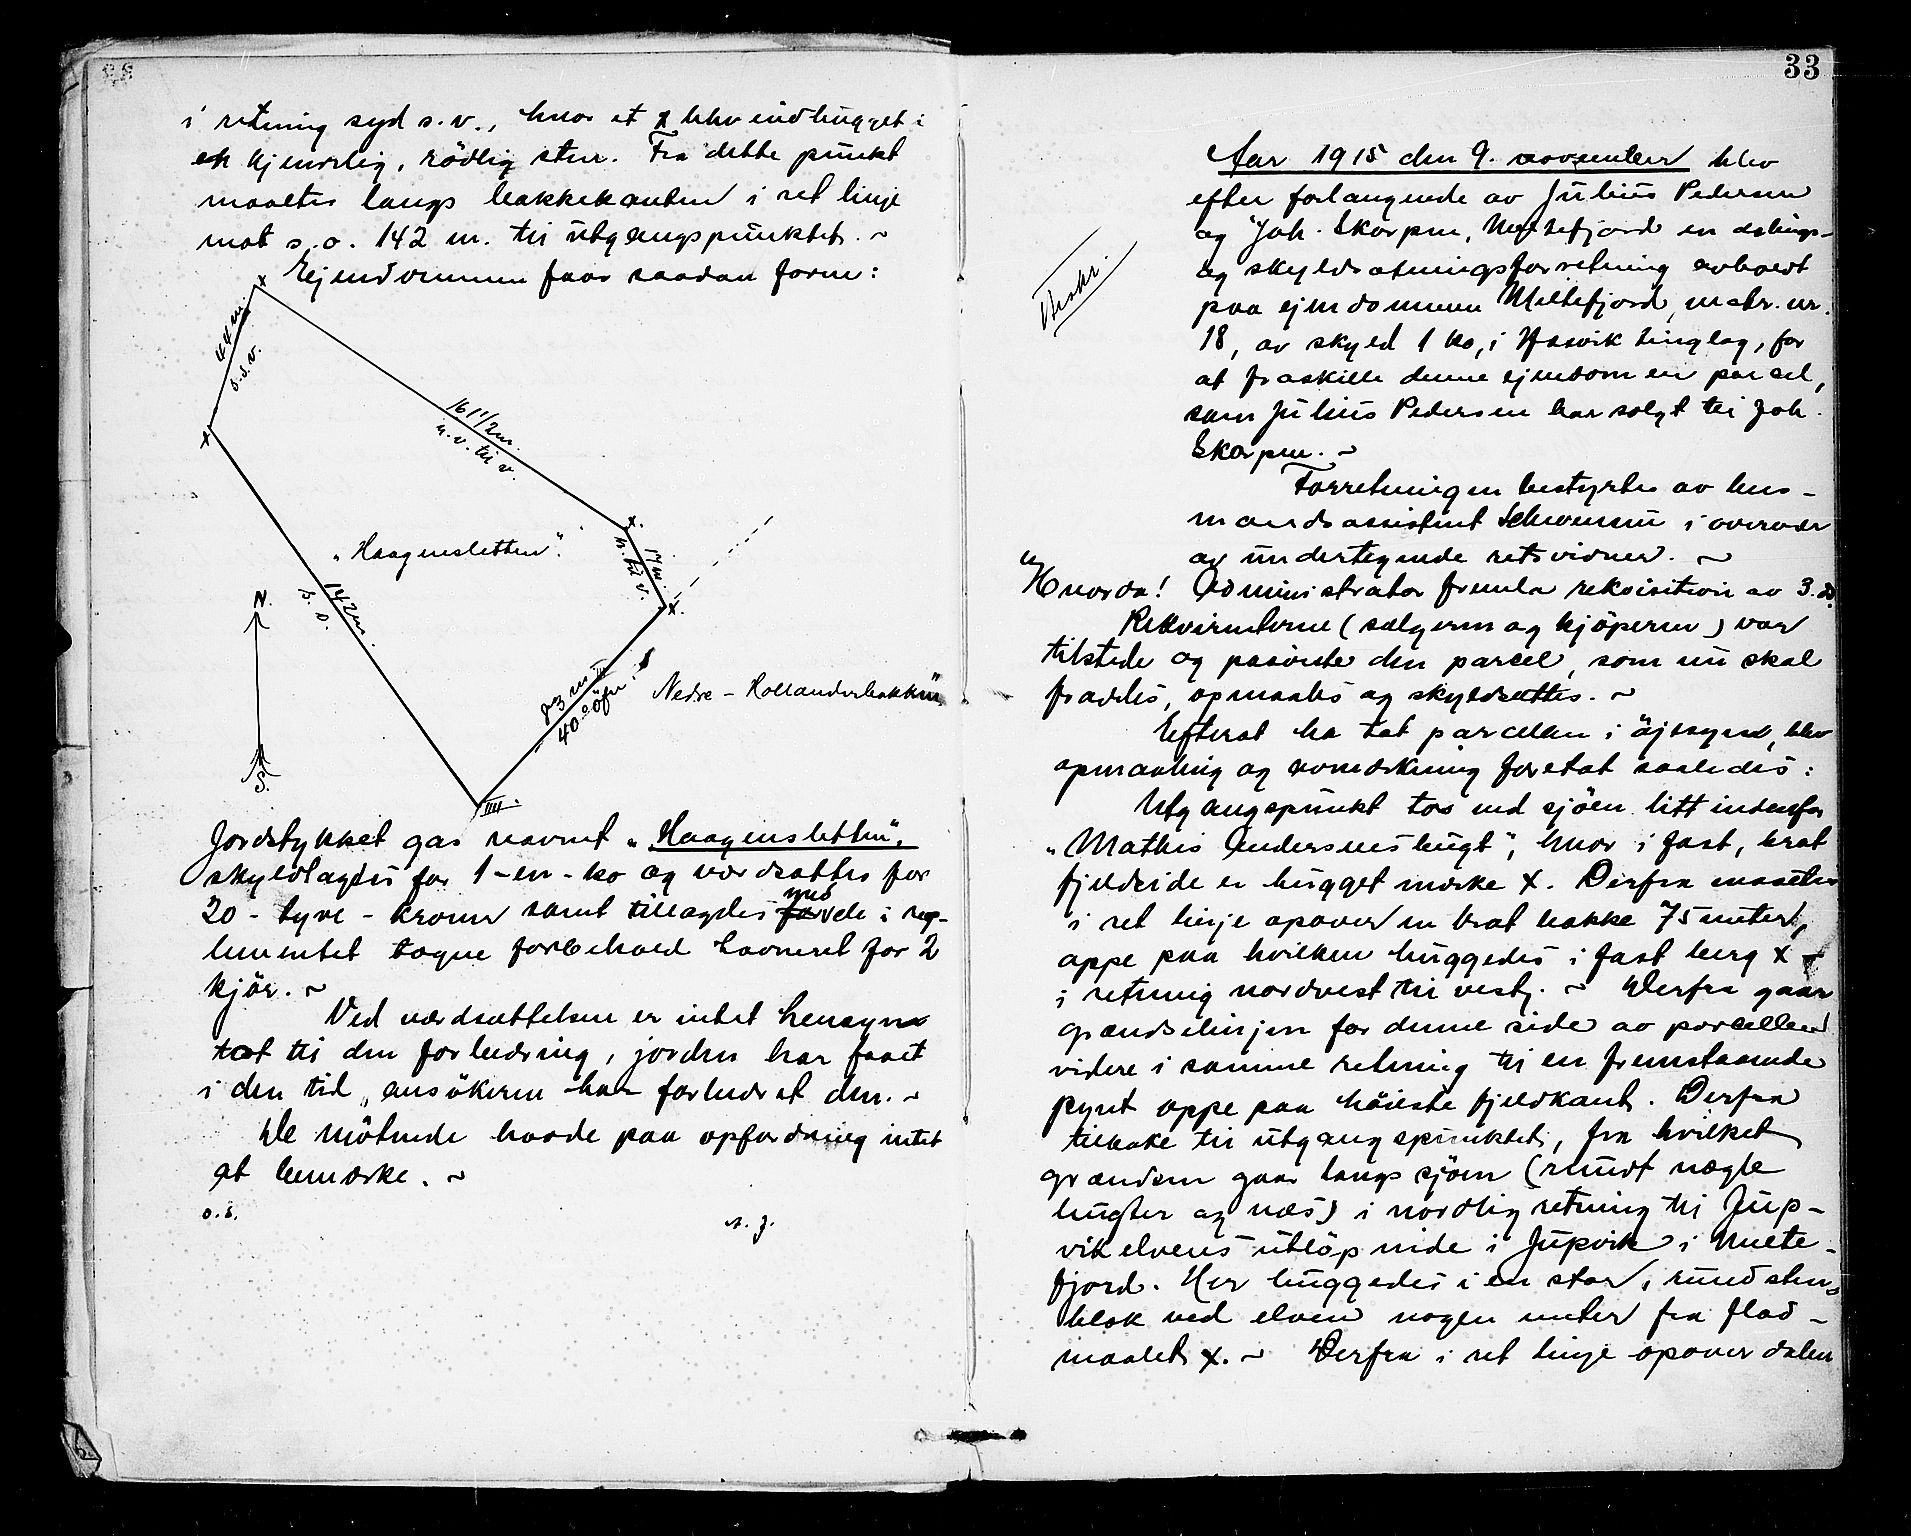 i retning syd s.v., hvor et x blev indhugget i
en kjendelig, rødlig sten. Fra dette punkt
maaltes langs bakkekanten i ret linje
mot s.o. 142 m. til utgangspunktet. ~
Ejendommen faar saadan form:
44 m.
s.s.v.
161 1/2 m.
n.v. til v.
17 m.
n. til v.
„Haagensletten".
142 m.
s.o.
N.
S.
73 m
40° öfr.
Nedre-Hollanderbakken
IIII.
Jordstykket gas navnet „Haagensletten",
skyldlagdes for 1-en-ko og værdsattes for
20-tyve-kroner samt tillagdes med de i reg-
lementet tagne forbehold havneret for 2
kjör. ~
Ved værdsættelsen er intet hensyn
tat til den forbedring, jorden har faaet
i den tid, ansökeren har forbedret den. ~
De mötende havde paa opfordring intet
at bemerke. ~
o.s. s.f.
33
Aar 1915 den 9. november blev
efter forlangende av Julius Pedersen
og Joh. Skorpen, Meltefjord en delings-
og skyldsætningsforretning avholdt
paa ejendommen Meltefjord, matr. nr.
18, av skyld 1 ko, i Hasvik tinglag, for
at fraskille denne ejendom en parcel,
som Julius Pedersen har solgt til Joh.
Skorpen. ~
Forretningen bestyrtes av lens-
mandsassistent i overvær
av undertegnede retsvidner. ~
Hvorda! Administrator fremla rekvisition av 3. ds.
Rekvirenterne (sælgeren og kjöperen) var
tilstede og paaviste den parcel, som nu skal
fradeles, opmaales og skyldsættes. ~
Efterat ha tat parcellen i öjesyn, blev
opmaaling og avmerkning foretat saaledes:
Utgangspunkt tos ved sjöen litt indenfor
„Mathis Andersens bugt", hvor i fast, brat
fjeldside er hugget merke x. Derfra maaltes
i ret linje opover en brat bakke 75 meter,
oppe paa hvilken huggedes i fast berg x –
i retning nordvest til vest. ~ Derfra gaar
grændselinjen for denne side av parcellen
videre i samme retning til en fremstaaende
pynt oppe paa höieste fjeldkant. Derfra
tilbake til utgangspunktet, fra hvilket
grændsen gaar langs sjöen (rundt nogle
bugter og næs) i nordlig retning til Jup-
vikelvens utlöp inde i Jupvik i Melte-
fjord. Her huggedes i en stor, rund sten-
blok ved elven nogen meter fra flod-
maalet x. ~ Derfra i ret linje opover dalen